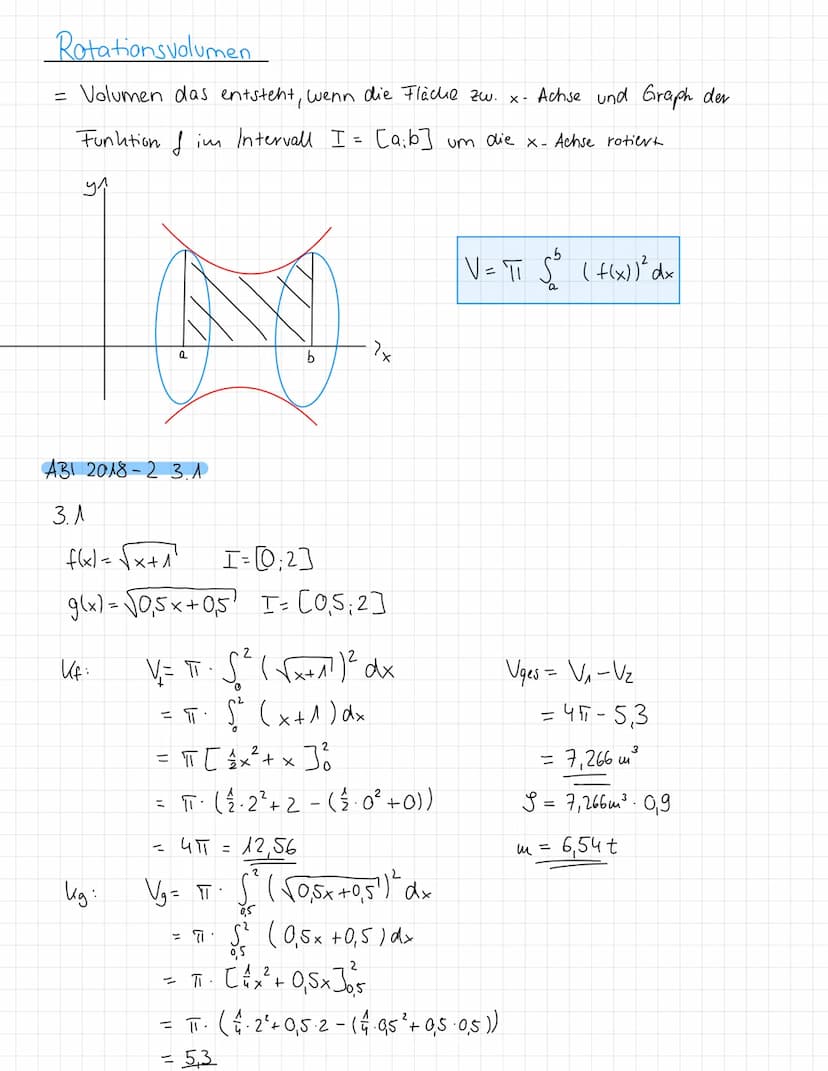 Rotationsvolumen
= Volumen das entsteht, wenn die Fläche zw. x-Achse und Graph der
Funktion f im Intervall I = [a;b] um die x-Achse rotiert
y
V = π ∫ₐᵇ (f(x))² dx
a
b
x
ABI 2018-2 3.1
3.1
f(x) = √(x+1) I = [0;2]
g(x) = √(0,5x+0,5) I = [0,5;2]
Kf: V₁ = π · ∫₀² (√(x+1))² dx
= π · ∫₀² (x+1) dx
= π [½x² + x]₀²
= π · (½·2² + 2 - (½·0² + 0))
= 4π = 12,56
Kg: Vg = π · ∫₀,₅² (√(0,5x+0,5))² dx
= π · ∫₀,₅² (0,5x + 0,5) dx
= π · [¼x² + 0,5x]₀,₅²
= π · (¼·2² + 0,5·2 - (¼·0,5² + 0,5·0,5))
= 5,3
Vges = V₁ - V₂
= 4π - 5,3
= 7,266 m³
ρ = 7,266 m³ · 0,9
m = 6,54 t